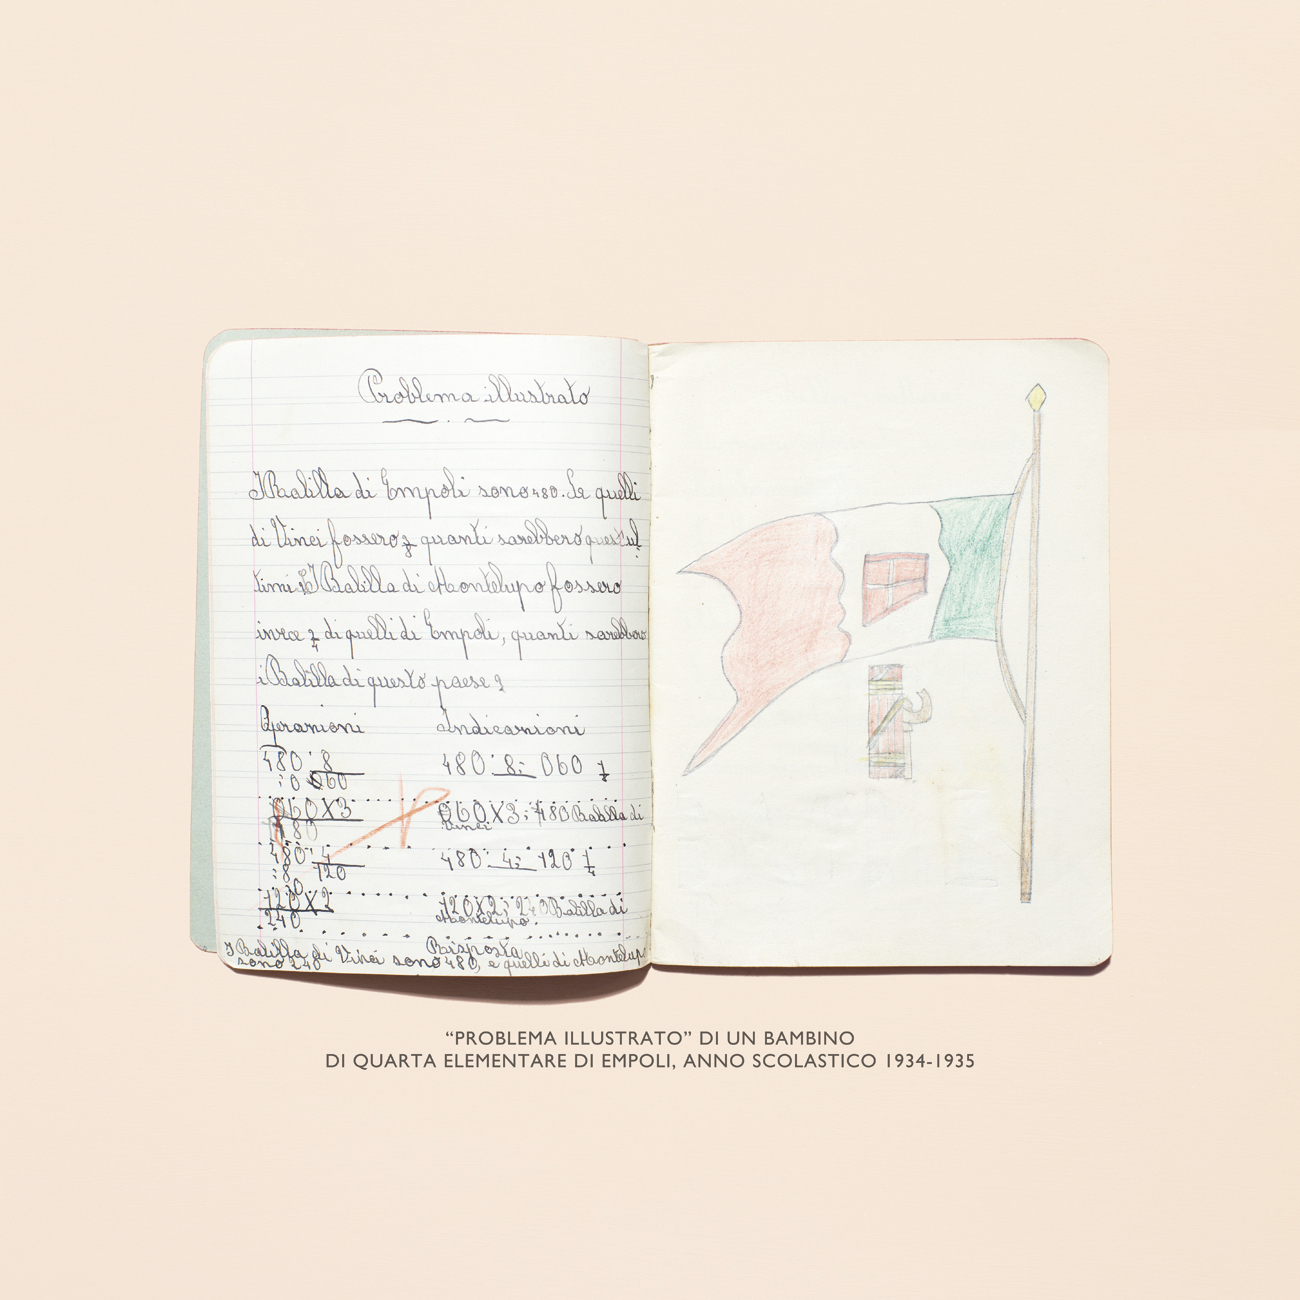 Problema illustrato
I Balilla di Empoli sono 480. Se quelli
di Vinci fossero quanti sarebbero quest'ul
timi? I Balilla di Montelupo fossero
invece 2/4 di quelli di Empoli, quanti sarebbero
i Balilla di questo paese?
Operazioni Indicazioni
480:8 480:8= 060 1/8
:0 060
060X3 060X3=180 Balilla di
180 Vinci
480:4 480:4= 120 1/4
:8 120
120X2 120X2=240 Balilla di
240 Montelupo.
Risposta
I Balilla di Vinci sono 180, e quelli di Montelupo
sono 240
“PROBLEMA ILLUSTRATO” DI UN BAMBINO
DI QUARTA ELEMENTARE DI EMPOLI, ANNO SCOLASTICO 1934-1935